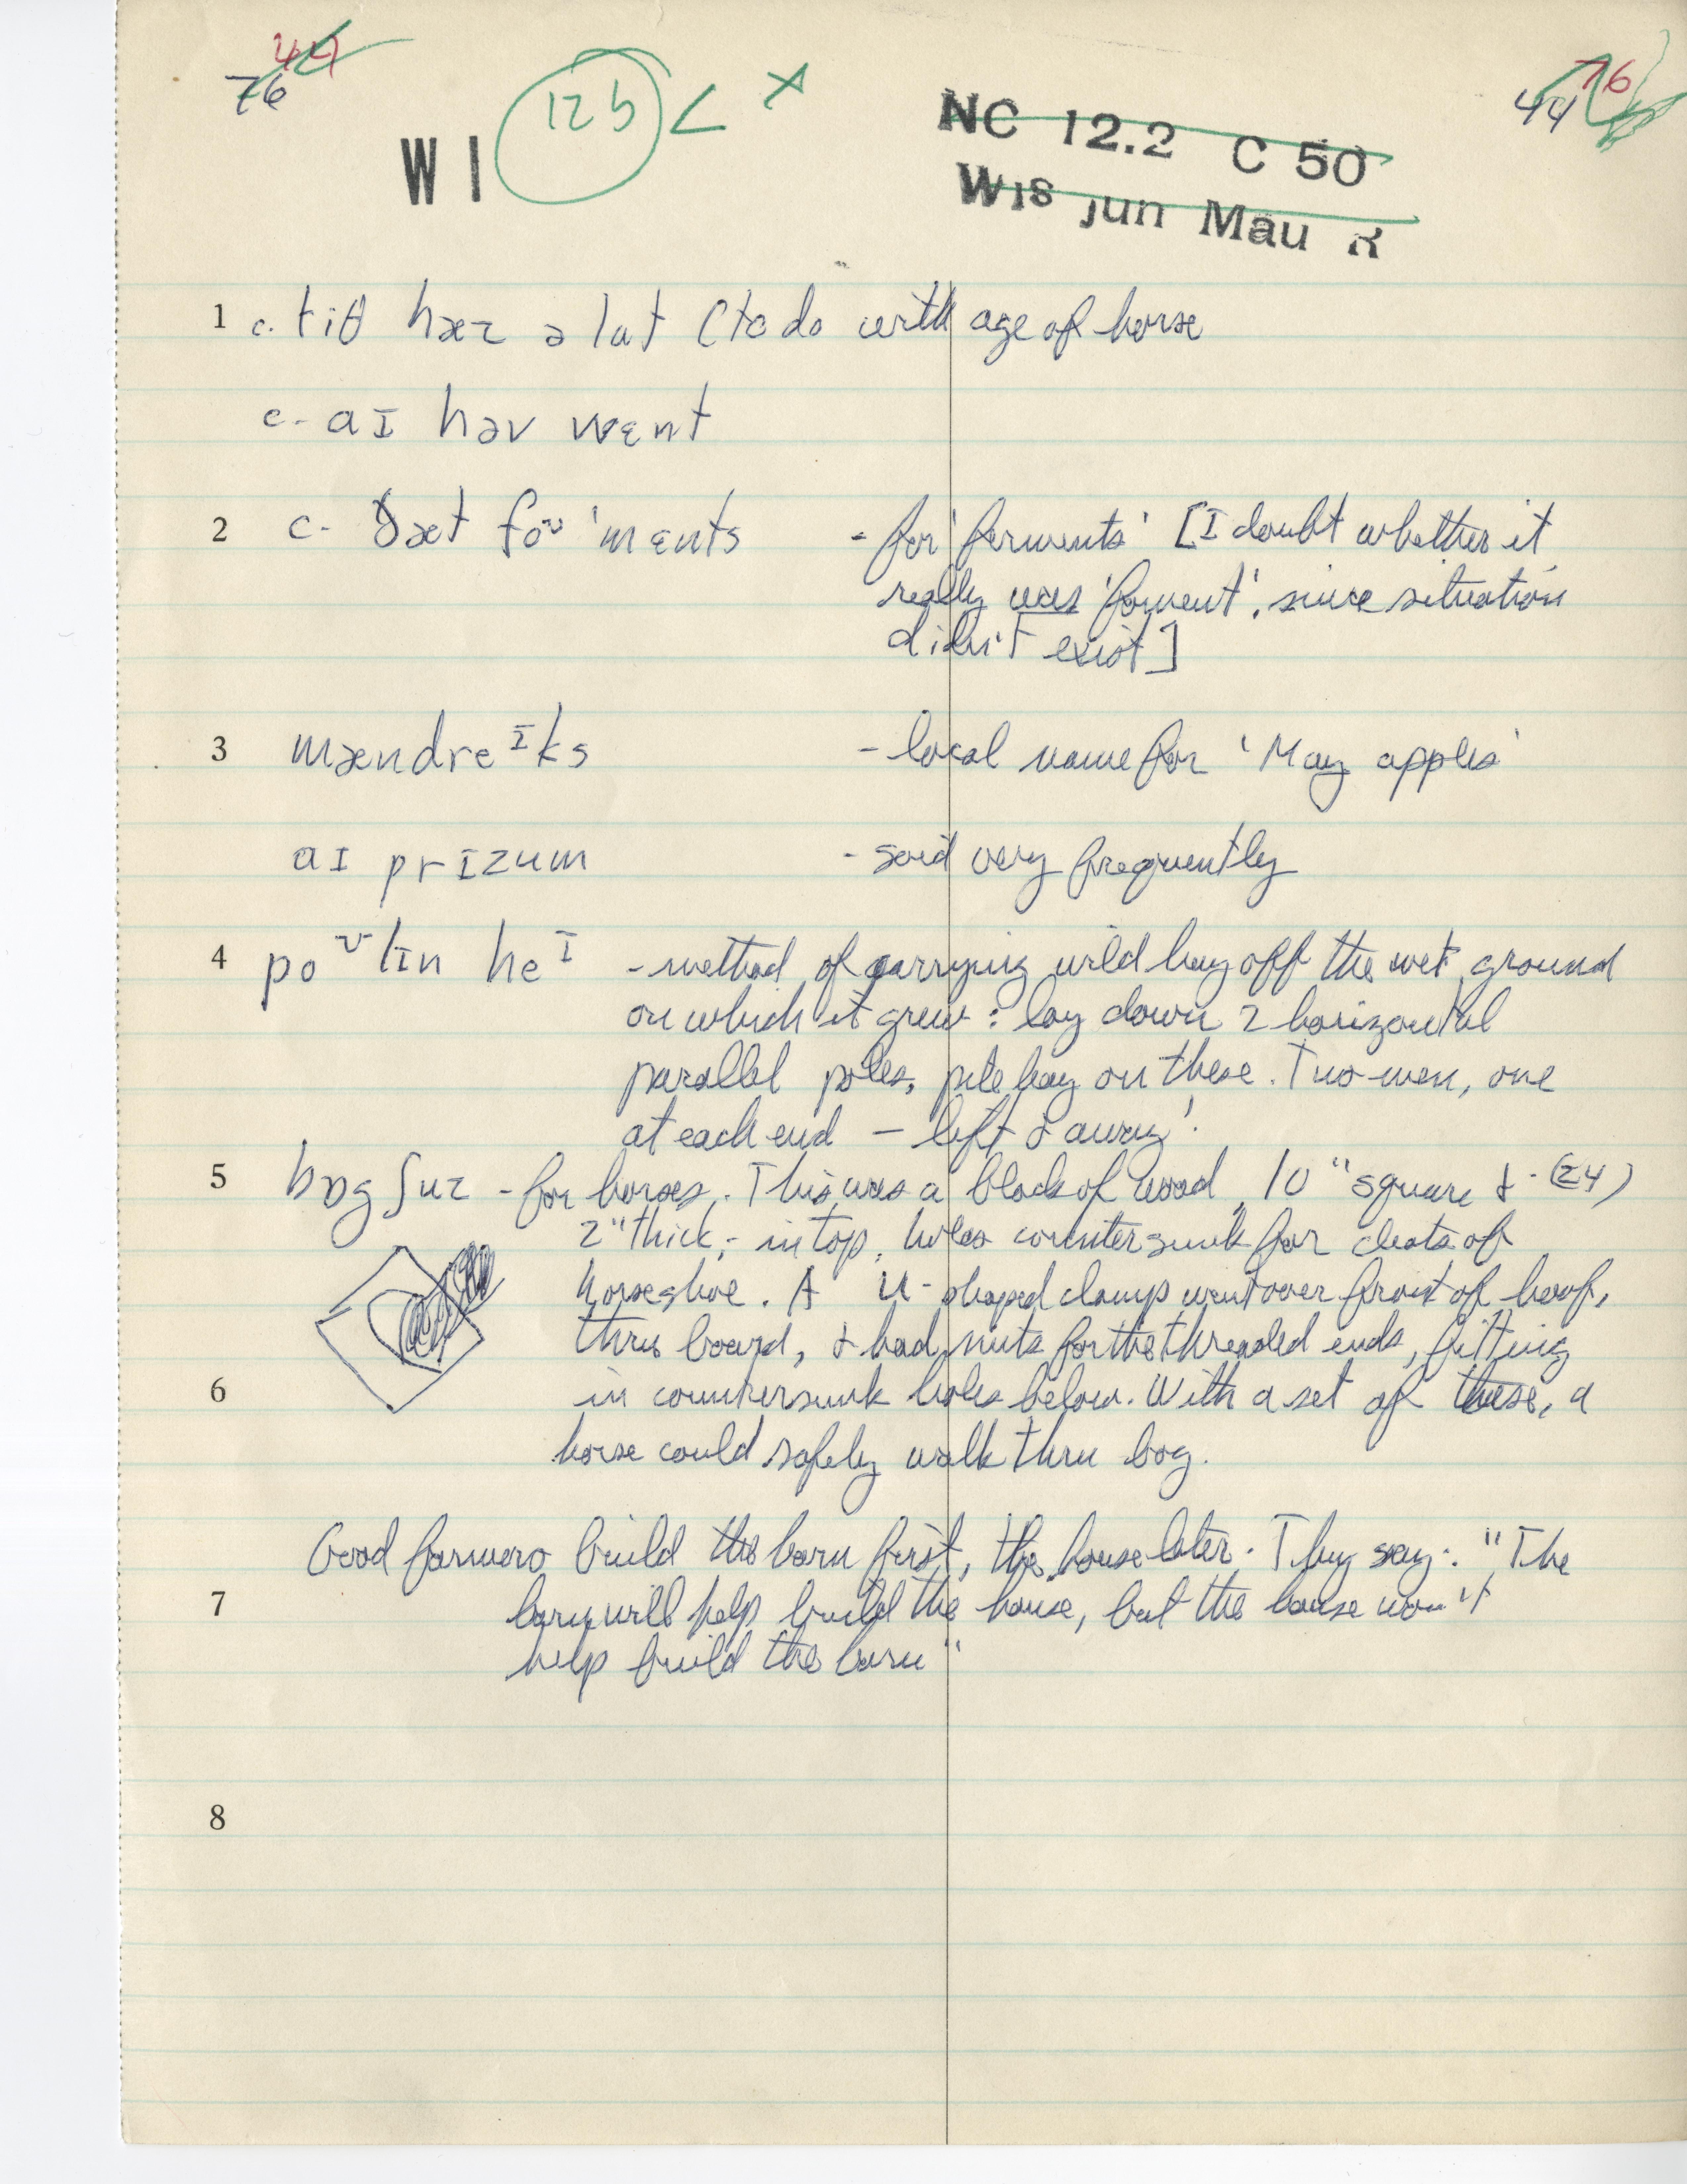 44 76
76 44
W I 125 < x
NC 12.2 C 50
Wis jun Mau R
1 c. tiθ hæz ə lɑt (to do with age of horse
c- aɪ həv wɛnt
2 c- ðæt foʊ'mɛnts - for 'ferments' [I doubt whether it
really was 'foment', since situation
didn't exist]
3 mændreɪks - local name for 'May apples'
aɪ prɪzum - said very frequently
4 poʊlɪn heɪ - method of carrying wild hay off the wet ground
on which it grew: lay down 2 horizontal
parallel poles, pile hay on these. Two men, one
at each end – lift & away!
5 bɒg ʃuz - for horses. This was a block of wood, 10" square & - (24)
2" thick; in top, holes countersunk for cleats of
horseshoe. A U-shaped clamp went over front of hoof,
thru board, & had nuts for the threaded ends, fitting
6 in countersunk holes below. With a set of these, a
horse could safely walk thru bog.
Good farmers build the barn first, the house later. They say: "The
7 barn will help build the house, but the house won't
help build the barn"
8